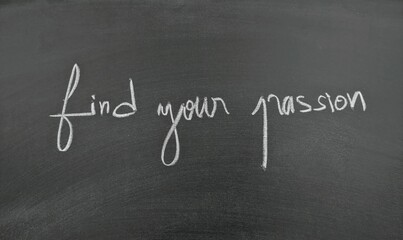 find your passion